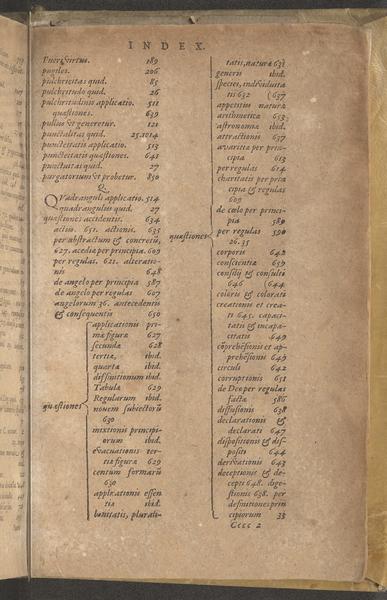 INDEX.
pugiles. 206
pulchreitas quid. 85
pulchreitudo quid. 26
pulchreitudinis applicatio. 511
quæstiones. 639
pullus vt generetur. 121
punctalitas quid. 25.1014
punctestatis applicatio. 513
punctestatis quæstiones. 641
punctuitas quid. 27
purgatorium vt probetur. 850
Q.
Quadranguli applicatio. 514
quadrangulus quid. 27
quæstiones accidentis. 634
actiō. 651. actionis. 635
per abstractum & concretū,
627. acediæ per principia. 609
per regulas. 621. alteratio-
nis 648
de angelo per principia 587
de angelo per regulas 607
angelorum 36. antecedentis
& consequentis 650
quæstiones
applicationis pri-
mæ figuræ 627
secundæ 628
tertiæ, ibid.
quartæ ibid.
diffinitionum ibid.
Tabulæ 629
Regularum ibid.
nouem subiectorū
630
mixtionis principi-
orum ibid.
euacuationis ter-
tiæ figuræ 629
centum formarū
630
applicationis essen
tiæ ibid.
bonitatis, plurali-
quæstiones
tatis, naturæ 631
generis ibid.
speciei, indiuidui­ta
tis 632 (637
appetitus naturæ
arithmeticæ 653.
astronomiæ ibid.
attractionis 637
auaritiæ per prin-
cipia 613
per regulas 614
charitatis per prin
cipia & regulas
609
de cœlo per princi-
pia 589
per regulas 590
26.35
corporis 642
conscientiæ 659
consilij & consulti
646 (644
coloris & colorati
creationis et crea-
ti 645. capaci-
tatis & incapa-
citatis 649
cōprehēsionis et ap-
prehēsionis 649
circuli 642
corruptionis 651
de Deo per regulas
facta 586
diffusionis 638
declarationis &
declarati 647
dispositionis & dis-
positi 644
deriuationis 643
deceptionis & de-
cepti 648. dige-
stionis 638. per
definitiones prin
cipiorum 33
Cccc 2